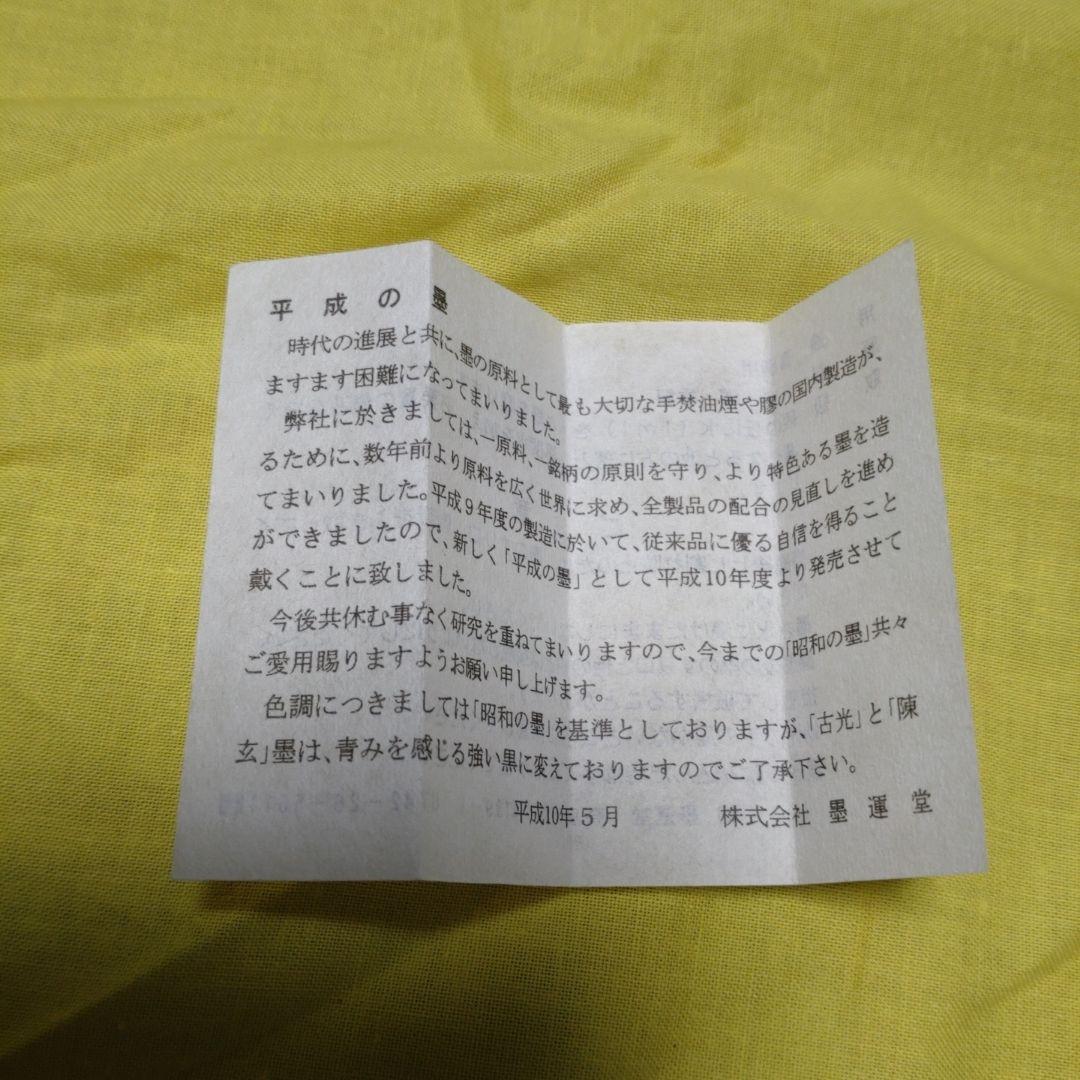 平成の墨
時代の進展と共に、墨の原料として最も大切な手焚油煙や膠の国内製造が、
ますます困難になってまいりました。
弊社に於きましては、一原料、一銘柄の原則を守り、より特色ある墨を造
るために、数年前より原料を広く世界に求め、全製品の配合の見直しを進め
てまいりました。平成9年度の製造に於いて、従来品に優る自信を得ること
ができましたので、新しく「平成の墨」として平成10年度より発売させて
戴くことに致しました。
今後共休む事なく研究を重ねてまいりますので、今までの「昭和の墨」共々
ご愛用賜りますようお願い申し上げます。
色調につきましては「昭和の墨」を基準としておりますが、「古光」と「陳
玄」墨は、青みを感じる強い黒に変えておりますのでご了承下さい。
平成10年5月 株式会社 墨運堂